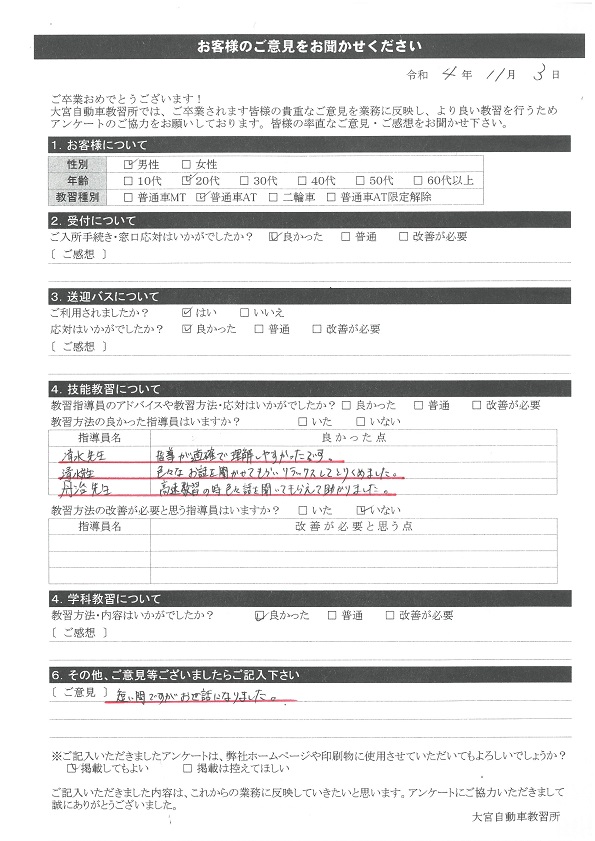 お客様のご意見をお聞かせください
令和 4 年 11 月 3 日
ご卒業おめでとうございます!
大宮自動車教習所では、ご卒業されます皆様の貴重なご意見を業務に反映し、より良い教習を行うため
アンケートのご協力をお願いしております。皆様の率直なご意見・ご感想をお聞かせ下さい。
1. お客様について
性別 ☑男性 □女性
年齢 □10代 ☑20代 □30代 □40代 □50代 □60代以上
教習種別 □普通車MT ☑普通車AT □二輪車 □普通車AT限定解除
2. 受付について
ご入所手続き・窓口応対はいかがでしたか? ☑良かった □普通 □改善が必要
〔 ご感想 〕
3. 送迎バスについて
ご利用されましたか? ☑はい □いいえ
応対はいかがでしたか? ☑良かった □普通 □改善が必要
〔 ご感想 〕
4. 技能教習について
教習指導員のアドバイスや教習方法・応対はいかがでしたか? □良かった □普通 □改善が必要
教習方法の良かった指導員はいますか? □いた □いない
指導員名 良かった点
清水先生 指導が直確で理解しやすかったです。
先生 色々なお話を聞かせてもらいリラックスしてとりくめました。
丹治先生 高速教習の時色々話を聞いてもらえて助かりました。
教習方法の改善が必要と思う指導員はいますか? □いた ☑いない
指導員名 改善が必要と思う点
4. 学科教習について
教習方法・内容はいかがでしたか? ☑良かった □普通 □改善が必要
〔 ご感想 〕
6. その他、ご意見等ございましたらご記入下さい
〔 ご意見 〕 短い間ですがお世話になりました。
※ご記入いただきましたアンケートは、弊社ホームページや印刷物に使用させていただいてもよろしいでしょうか?
☑掲載してもよい □掲載は控えてほしい
ご記入いただきました内容は、これからの業務に反映していきたいと思います。アンケートにご協力いただきまして
誠にありがとうございました。
大宮自動車教習所